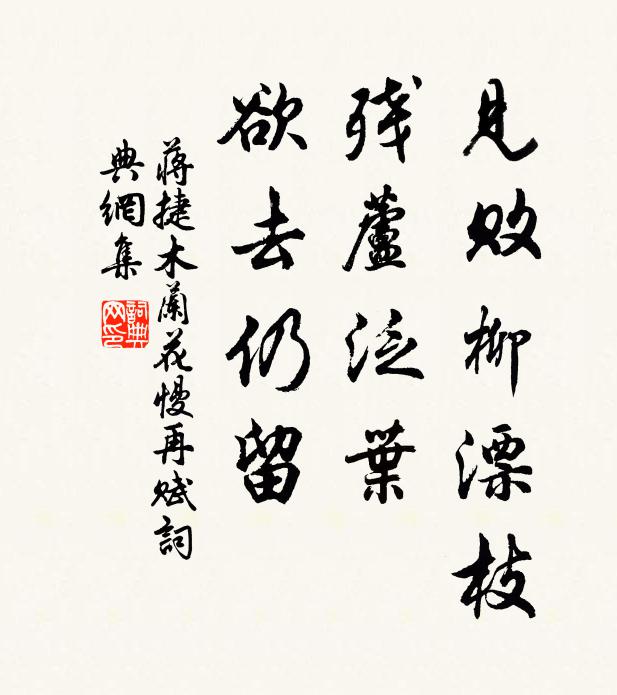 見敗柳漂枝
殘蘆泛葉
欲去仍留
蔣捷木蘭花慢再賦詞
典網集
詞典
网印